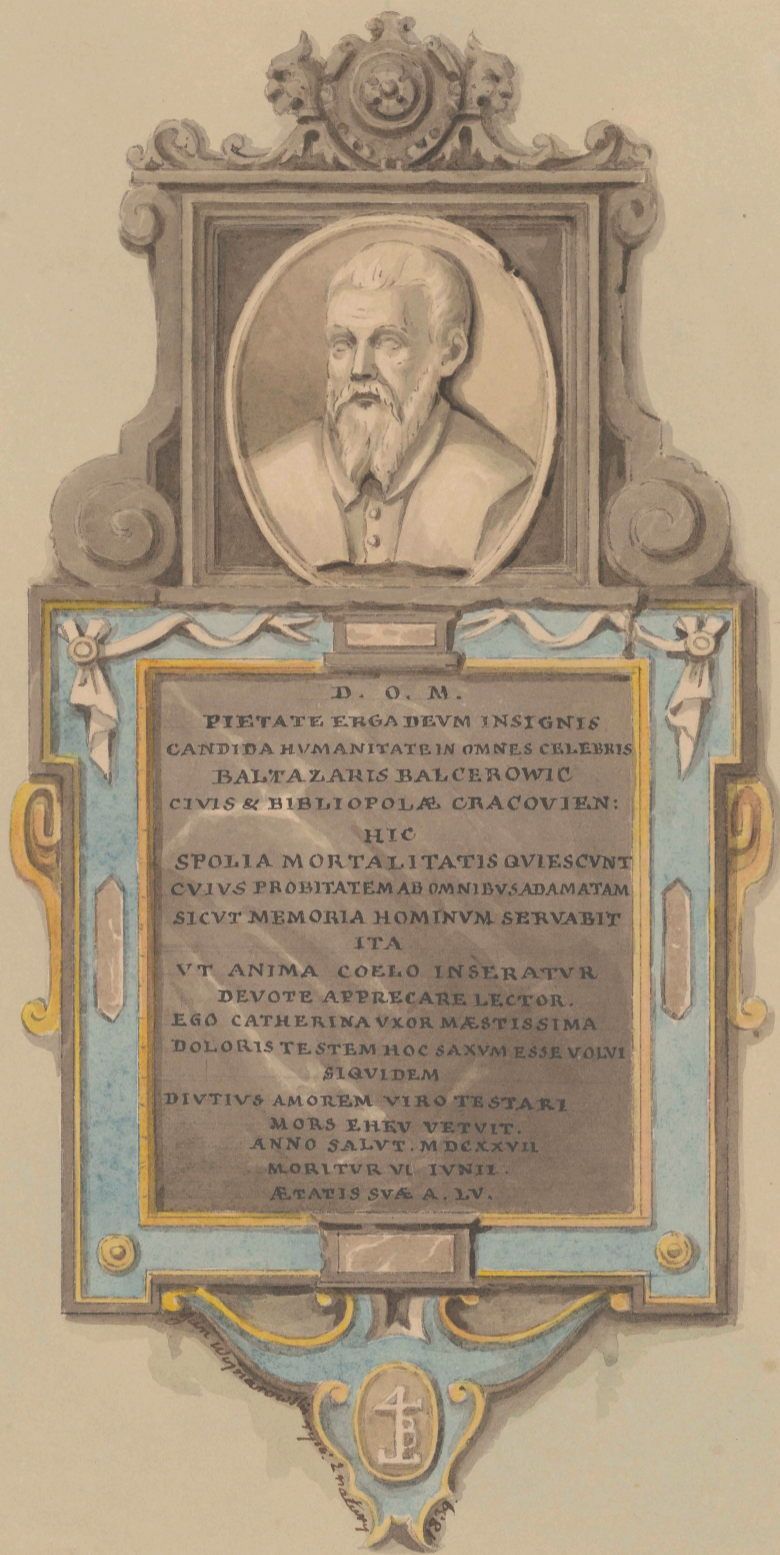 D. O. M.
PIETATE ERGA DEVM INSIGNIS
CANDIDA HVMANITATE IN OMNES CELEBRIS
BALTAZARIS BALCEROWIC
CIVIS & BIBLIOPOLÆ CRACOVIEN:
HIC
SPOLIA MORTALITATIS QVIESCVNT
CVIVS PROBITATEM AB OMNIBVS ADAMATAM
SICVT MEMORIA HOMINVM SERVABIT
ITA
VT ANIMA COELO INSERATVR
DEVOTE APPRECARE LECTOR.
EGO CATHERINA VXOR MÆSTISSIMA
DOLORIS TESTEM HOC SAXVM ESSE VOLVI
SIQVIDEM
DIVTIVS AMOREM VIRO TESTARI
MORS EHEV VETVIT.
ANNO SALVT. MDCXXVII
MORITVR VI IVNII.
ÆTATIS SVÆ A. LV.
Jan Wojnarowski rys: z natury